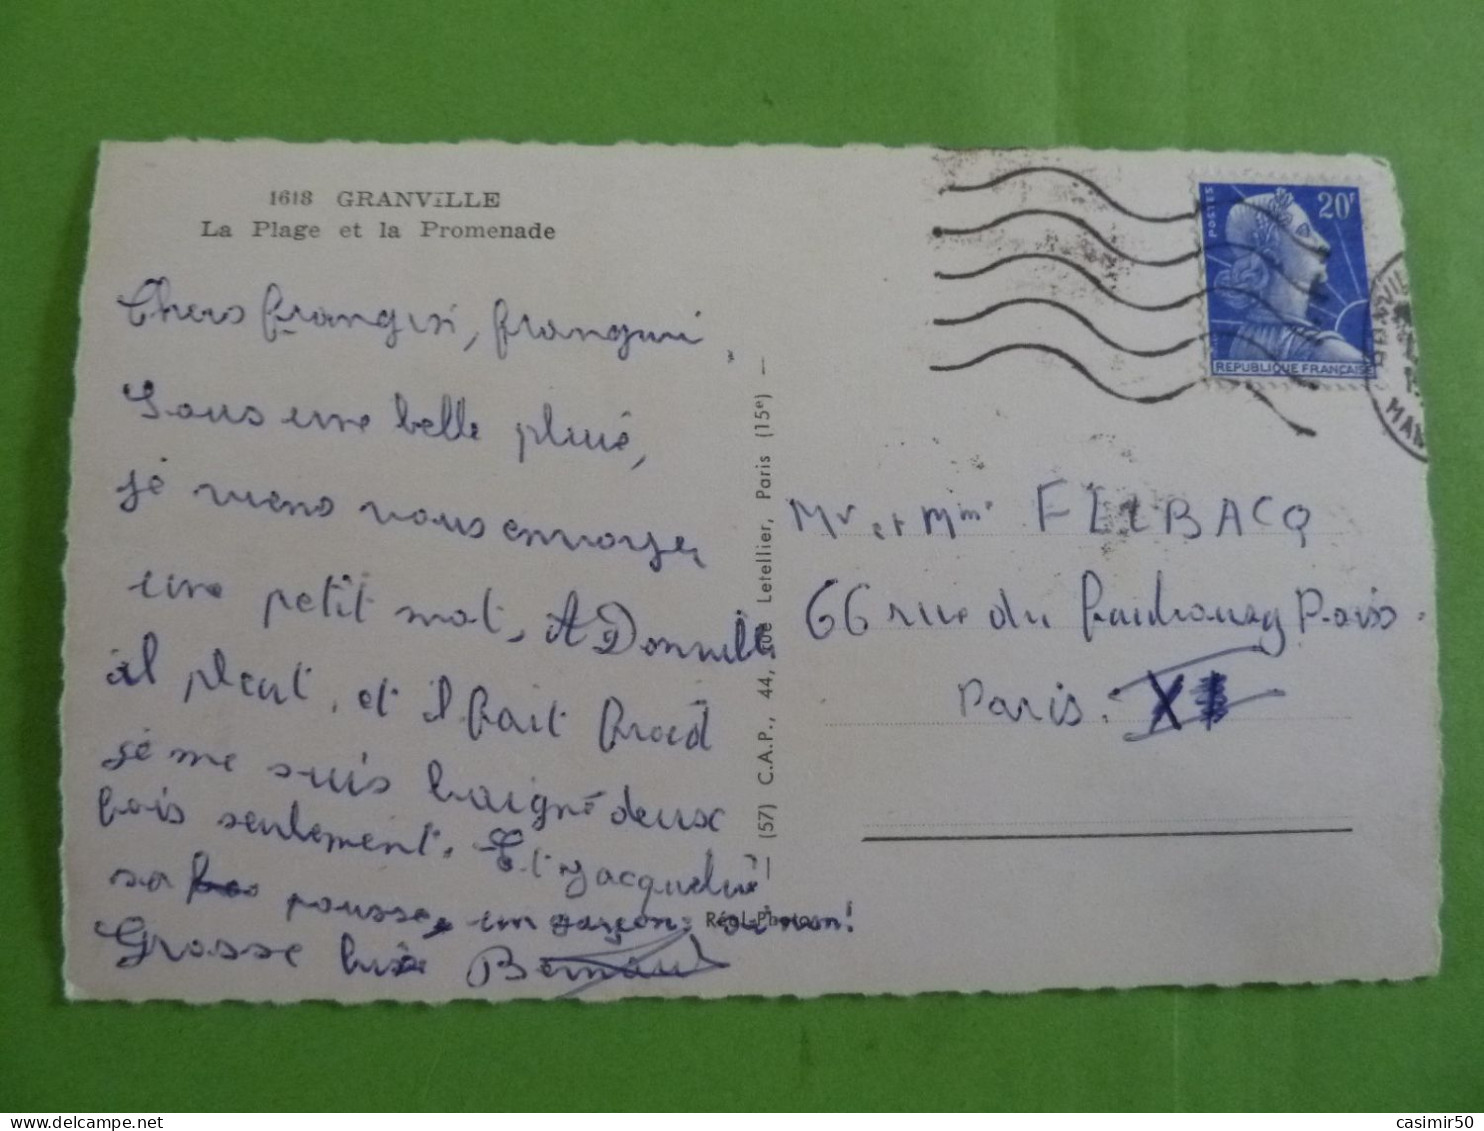 1618 GRANVILLE
La Plage et la Promenade
Chers frangin, frangine,
Sous une belle pluie,
je viens vous envoyer
une petit mot, A Donville
il pleut, et il fait froid
je me suis baigné deux
fois seulement. Et Jacqueline
sa pousse, un garçon, sinon!
Grosse bise Bernard
— (57) C.A.P., 44, rue Letellier, Paris (15e) —
Réal-Photo
POSTES
20F
REPUBLIQUE FRANÇAISE
Mr et Mme FLLBACQ
66 rue du faubourg Paris.
Paris. XI
casimir50